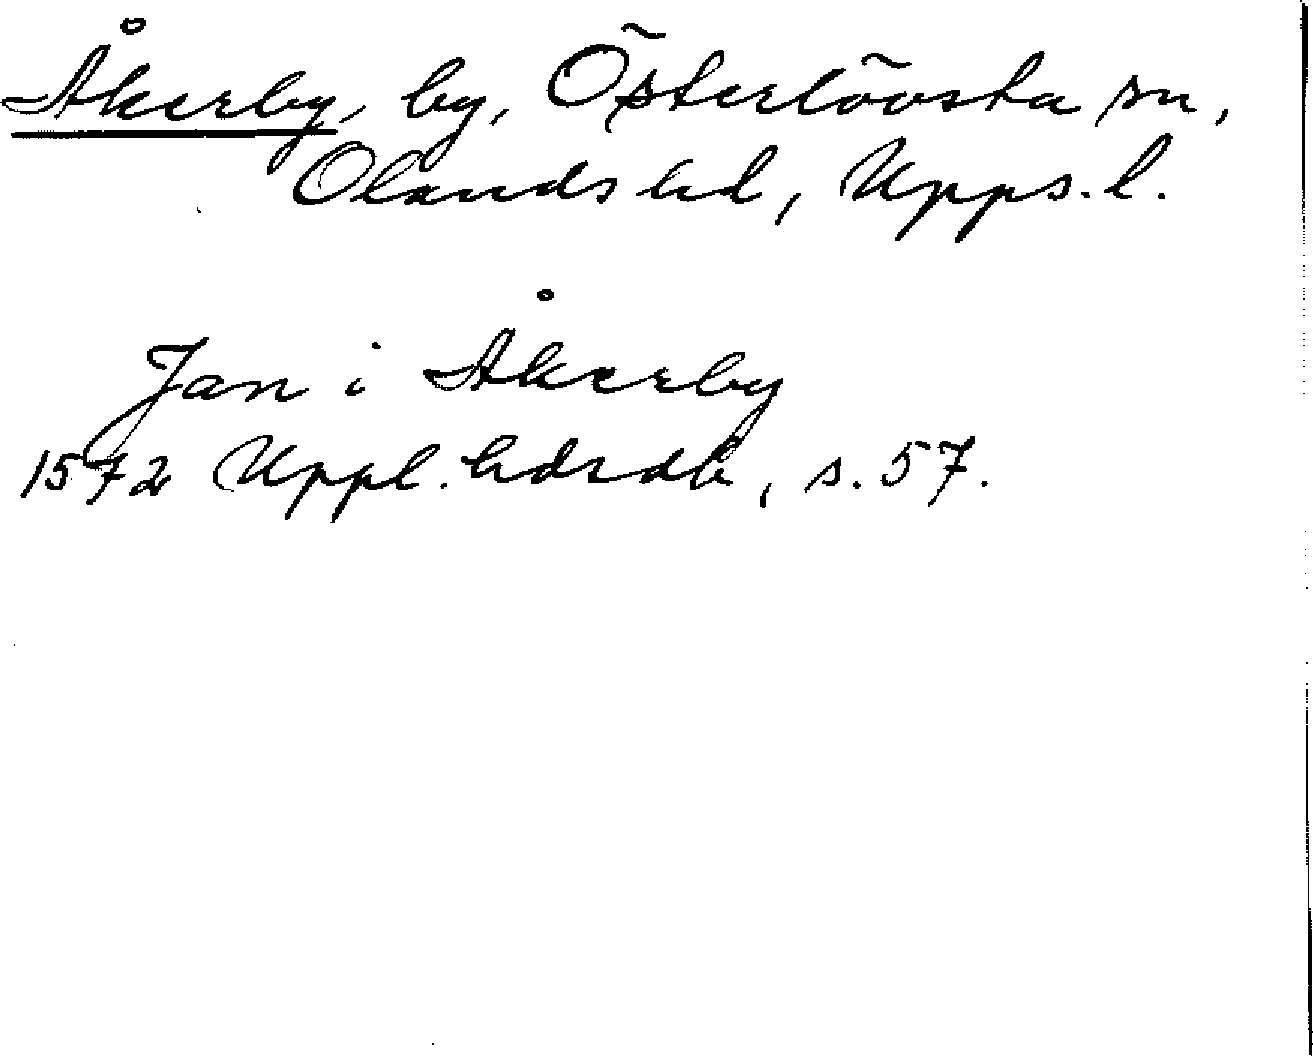 Åkerby, by, Österlövsta sn,
Olands hd, Upps. l.
Jan i Åkerby
1572 Uppl. hdrdb, s. 57.